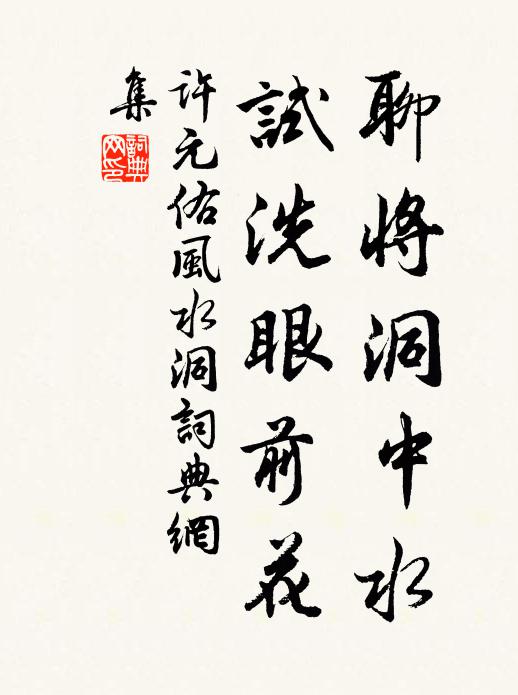 聊將洞中水
試洗眼前花
許元佑風水洞詞典網
集
詞典
網印